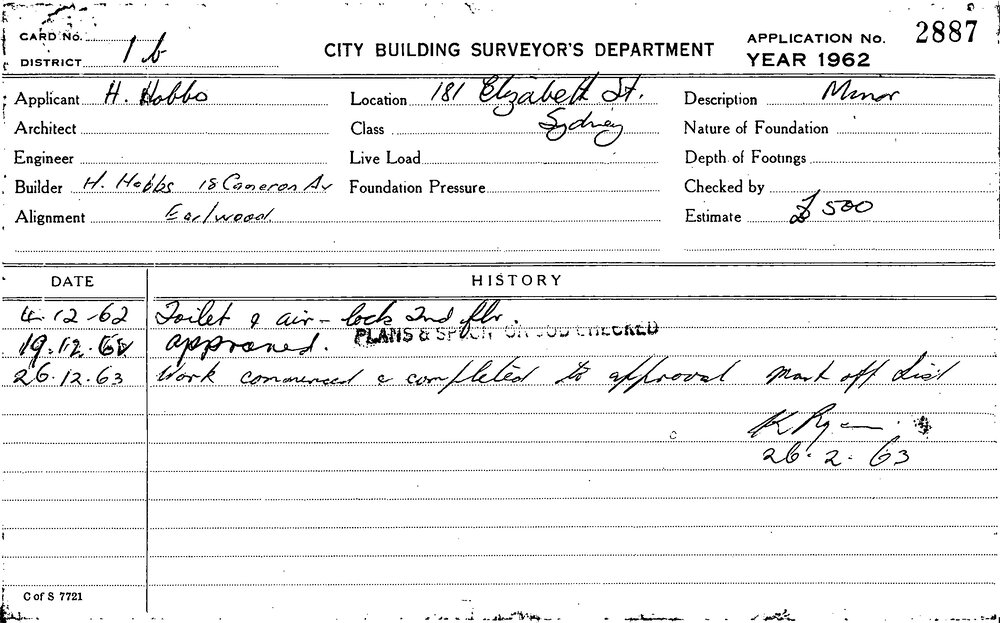 CARD No.
DISTRICT 1 b
CITY BUILDING SURVEYOR'S DEPARTMENT
APPLICATION No. 2887
YEAR 1962
Applicant H. Hobbs
Location 181 Elizabeth St.
Description Minor
Architect
Class Sydney
Nature of Foundation
Engineer
Live Load
Depth of Footings
Builder H. Hobbs 18 Cameron Av
Foundation Pressure
Checked by
Alignment Earlwood
Estimate £500
DATE HISTORY
4.12.62 Toilet & air-lock 2nd flr.
19.12.62 approved. PLANS & SPECN ON JOB CHECKED
26.12.63 Work commenced & completed to approval mark off list
K Ryan
26.2.63
C of S 7721